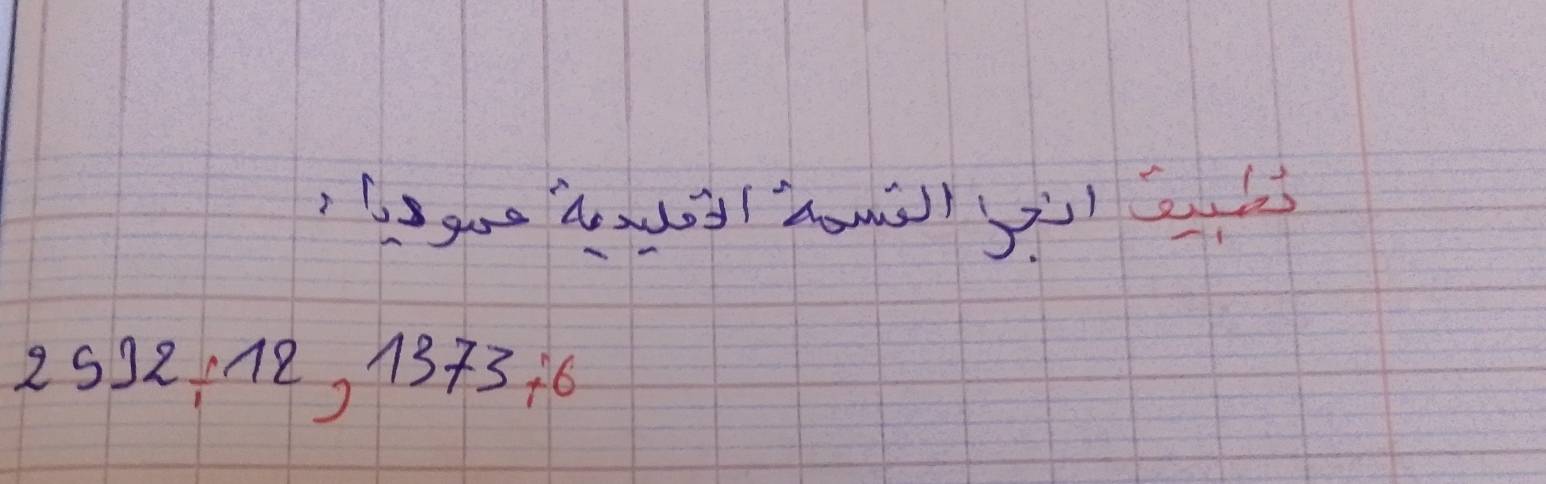 تطبيق انجز القسمة الاقليدية عموديا :
2592 ÷ 12 , 1373 ÷ 6